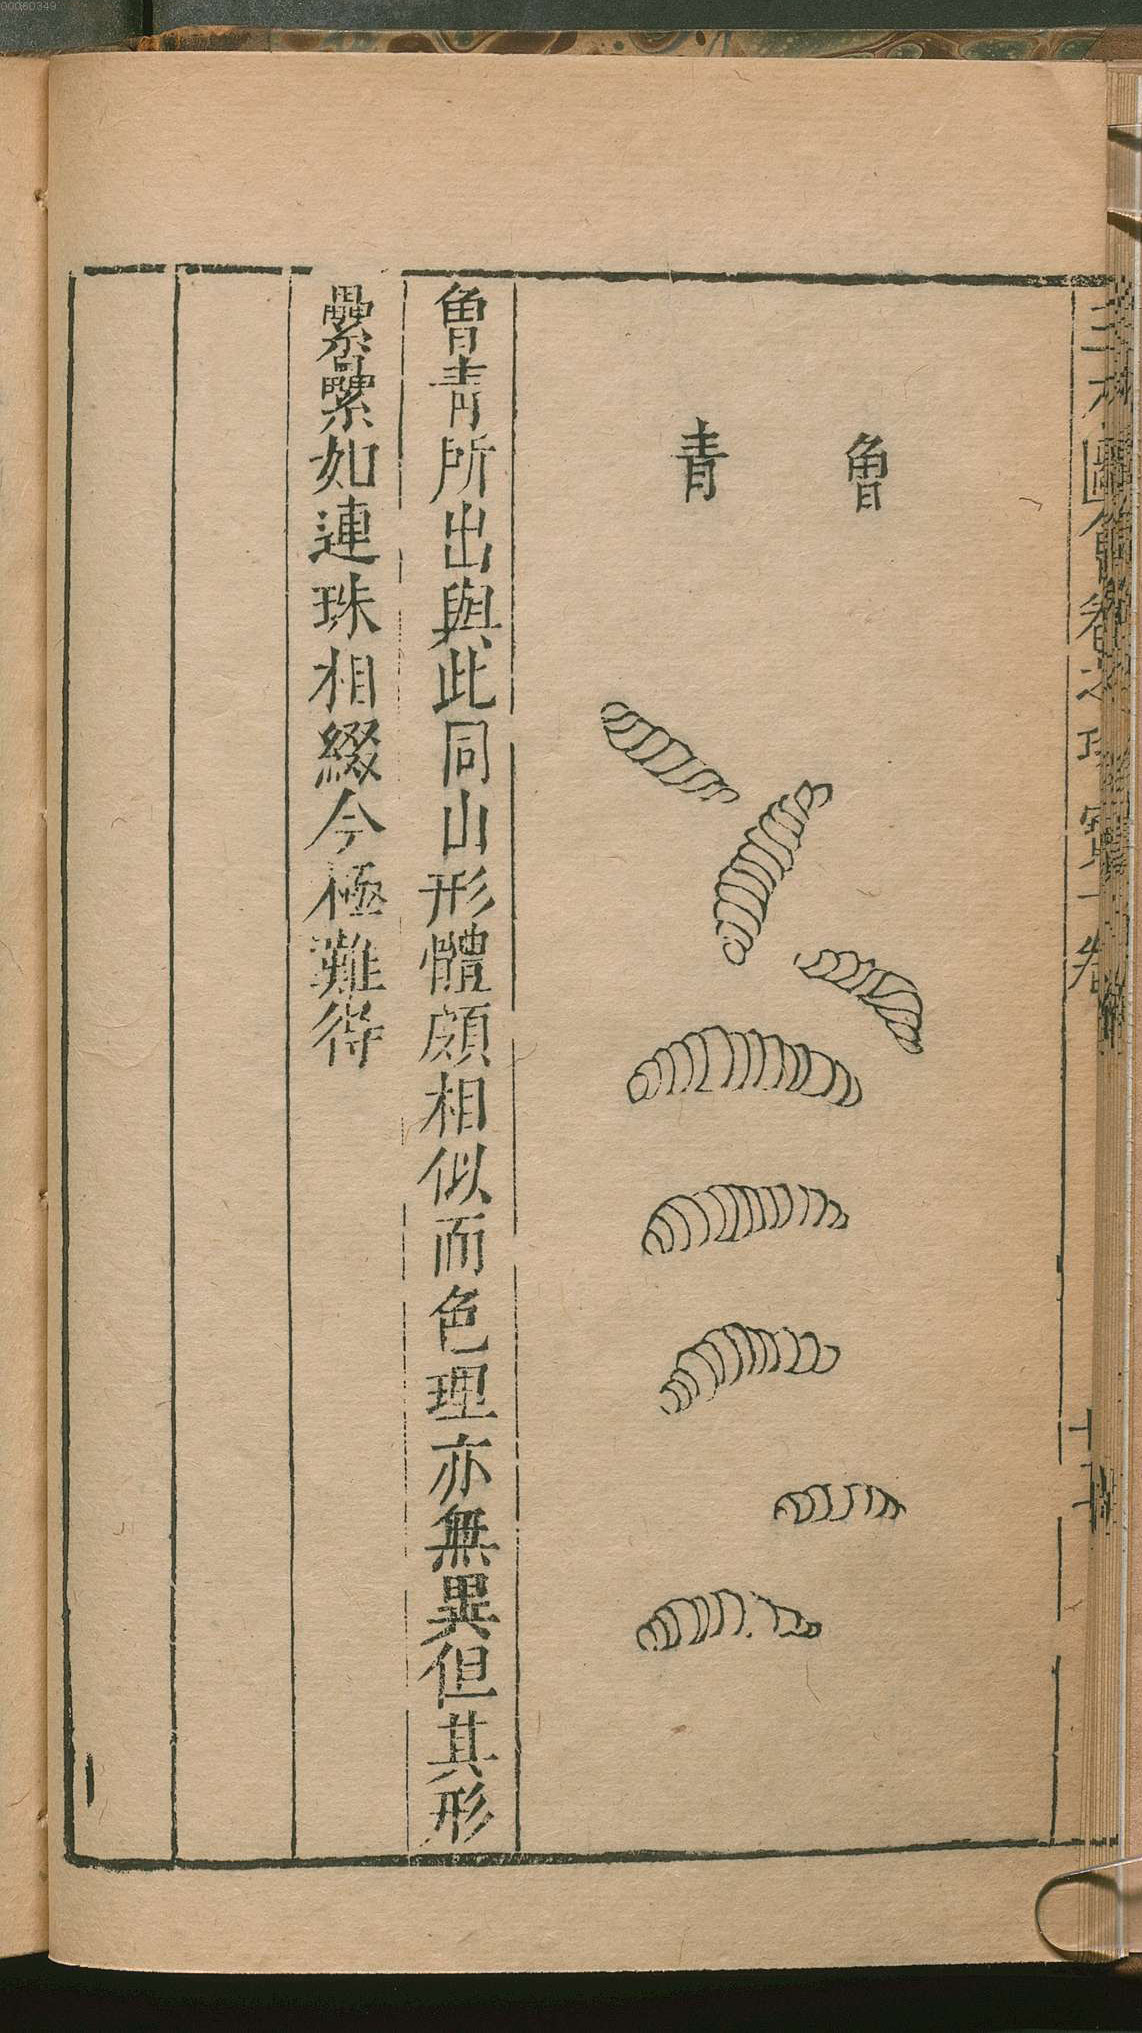 00060349
三才圖會
魯青
魯青所出與此同山形體頗相似而色理亦無異但其形
纍纍如連珠相綴今極難得